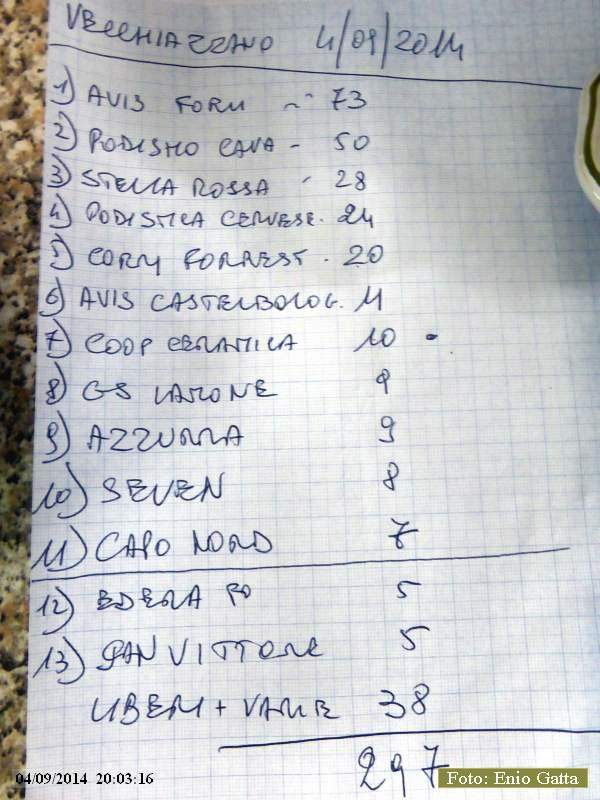 VECCHIAZZANO 4/09/2014
1) AVIS FORLI - 73
2) PODISMO CAVA - 50
3) STELLA ROSSA - 28
4) PODISTICA CERVESE. 24
5) CORRI FORREST . 20
6) AVIS CASTELBOLOG. 11
7) COOP CERAMICA 10
8) GS LAMONE 9
9) AZZURRA 9
10) SEVEN 8
11) CAPO NORD 7
12) EDERA FO 5
13) SAN VITTORE 5
LIBERI + VARIE 38
297
04/09/2014 20:03:16
Foto: Enio Gatta